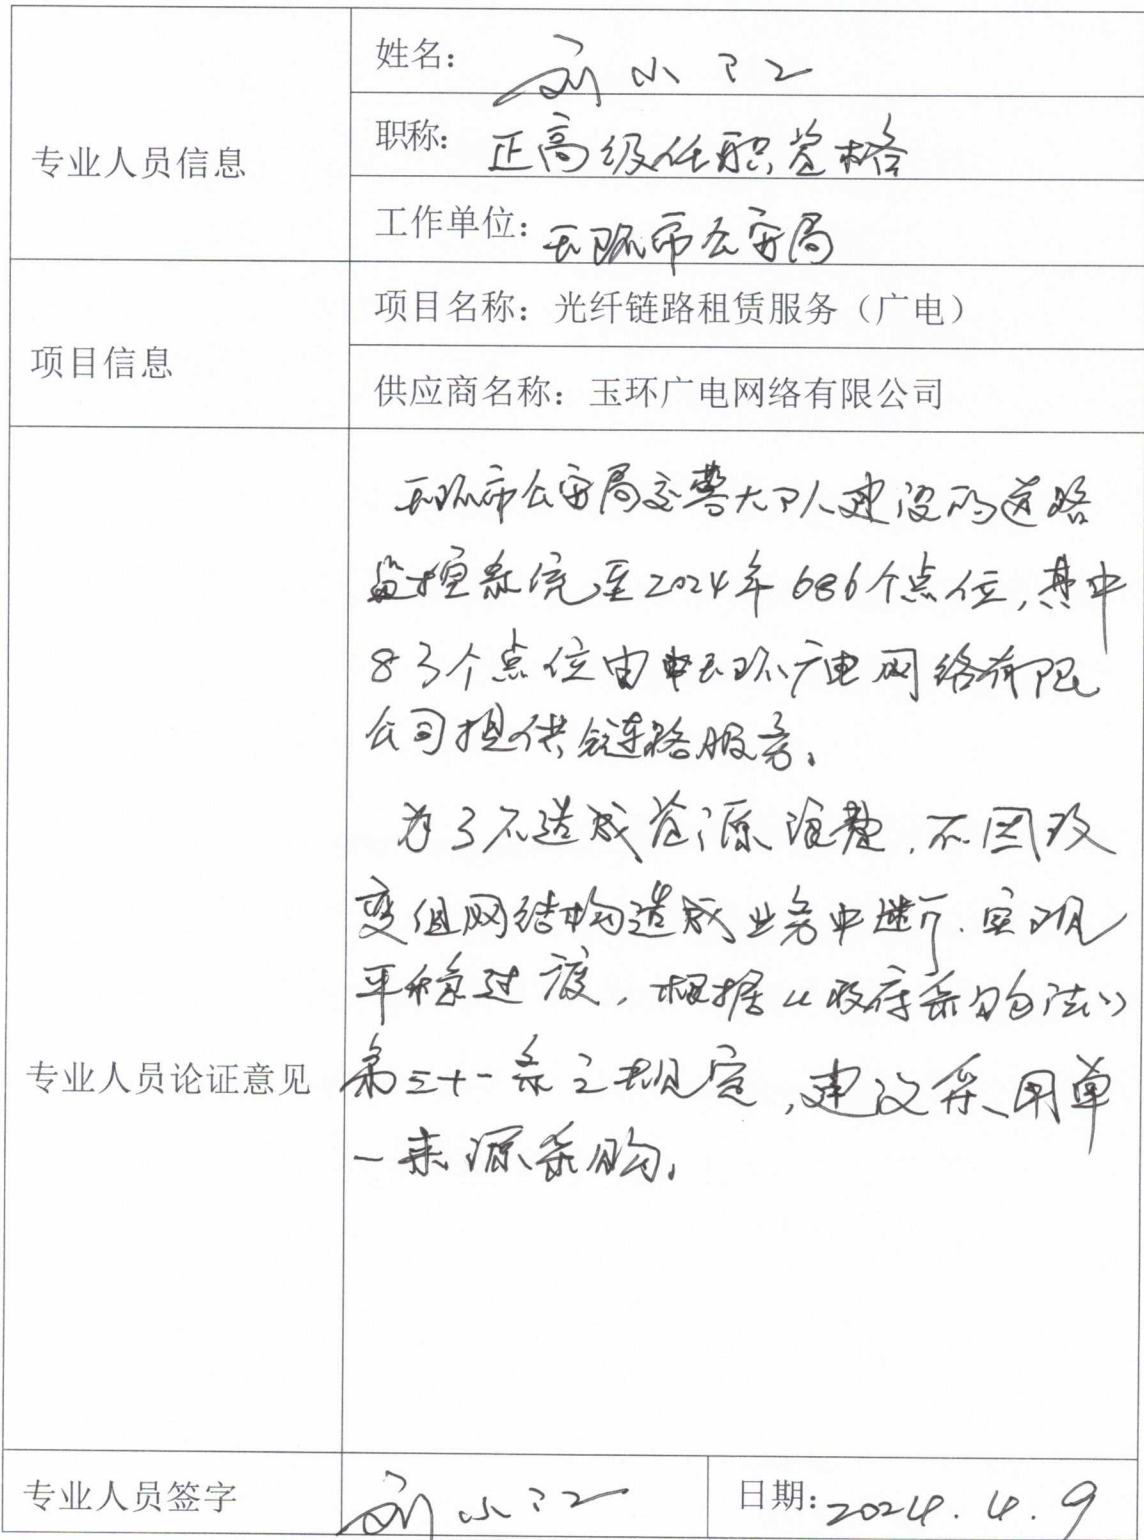 专业人员信息
姓名：刘小江
职称：正高级任职资格
工作单位：玉环市公安局
项目信息
项目名称：光纤链路租赁服务（广电）
供应商名称：玉环广电网络有限公司
专业人员论证意见
玉环市公安局交警大队建设的道路
监控系统至2024年686个点位，其中
83个点位由玉环广电网络有限
公司提供链路服务。
为了不造成资源浪费，不因改
变组网结构造成业务中断、实现
平稳过渡，根据《政府采购法》
第三十一条之规定，建议采用单
一来源采购。
专业人员签字
刘小江
日期：2024.4.9